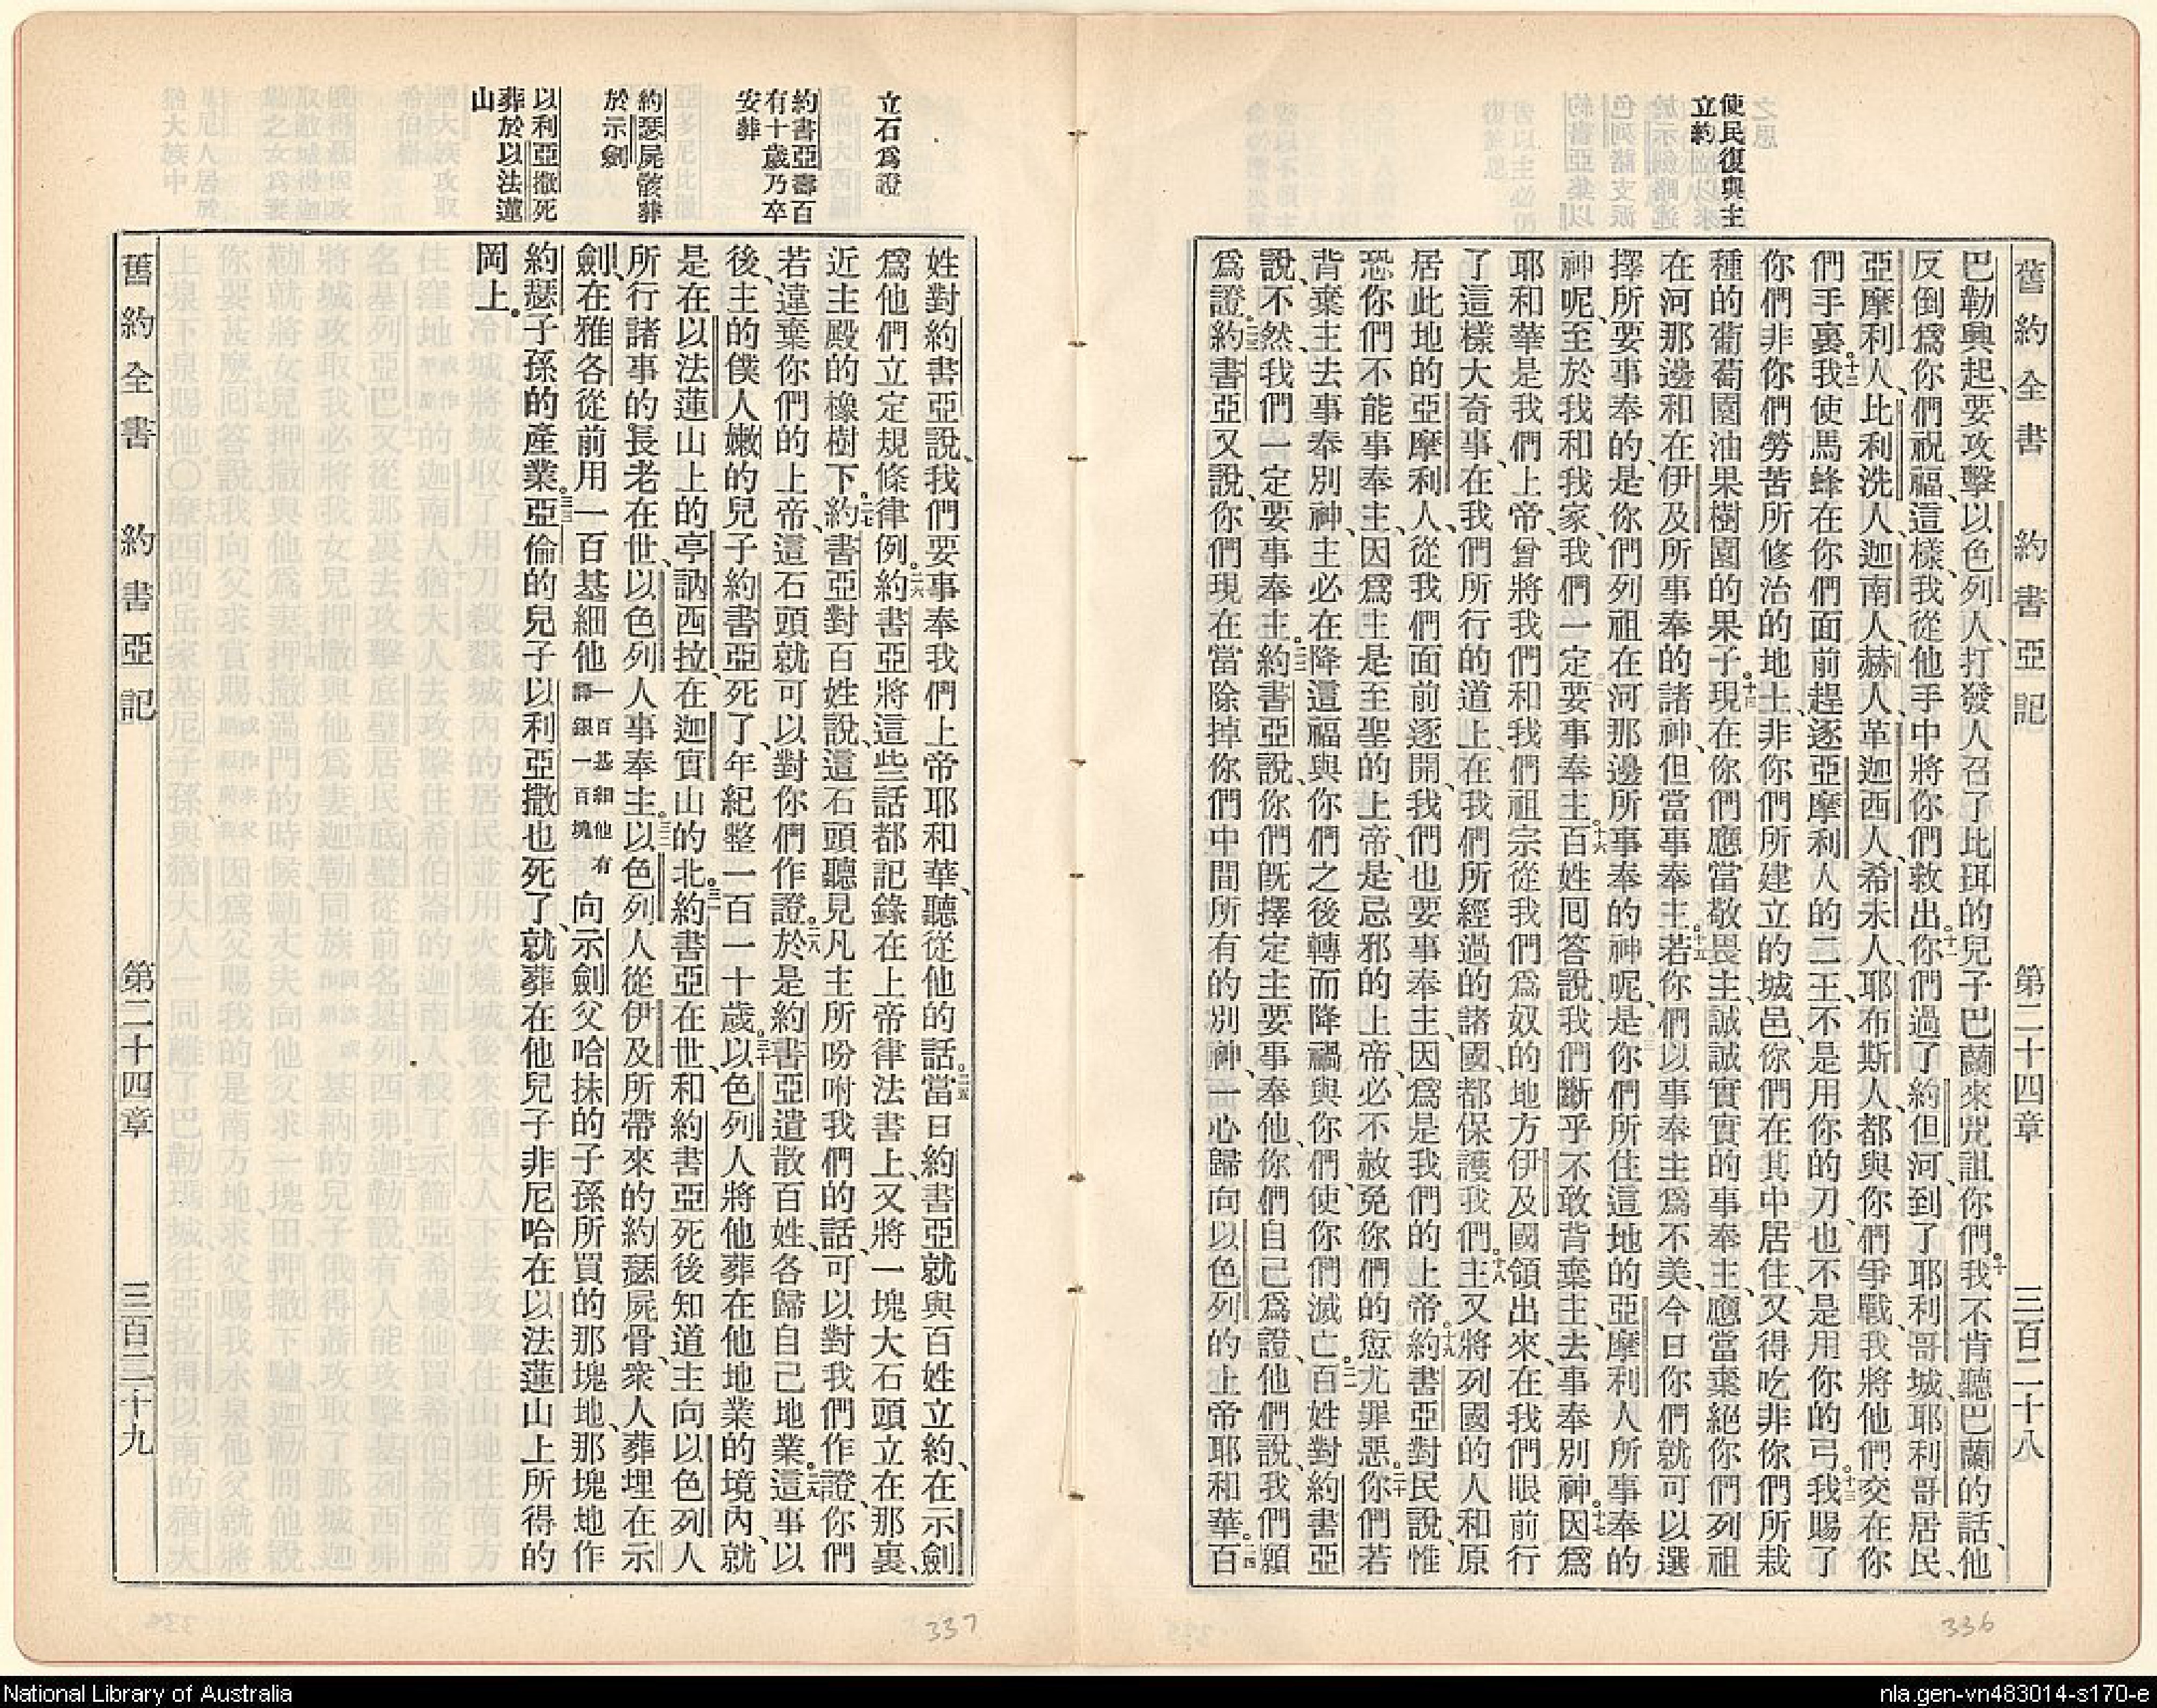 使民復與主
立約
舊約全書 約書亞記 第二十四章 三百二十八
巴勒興起、要攻擊以色列人、打發人召了比珥的兒子巴蘭來咒詛你們。十我不肯聽巴蘭的話、他
反倒爲你們祝福、這樣、我從他手中將你們救出。十一你們過了約但河、到了耶利哥城、耶利哥居民、
亞摩利人、比利洗人、迦南人、赫人、革迦西人、希未人、耶布斯人、都與你們爭戰、我將他們交在你
們手裏。十二我使馬蜂在你們面前趕逐亞摩利人的二王、不是用你的刀、也不是用你的弓。十三我賜了
你們非你們勞苦所修治的地土、非你們所建立的城邑、你們在其中居住、又得吃非你們所栽
種的葡萄園油果樹園的果子。十四現在你們應當敬畏主、誠誠實實的事奉主、應當棄絕你們列祖
在河那邊和在伊及所事奉的諸神、但當事奉主。十五若你們以事奉主爲不美、今日你們就可以選
擇所要事奉的、是你們列祖在河那邊所事奉的神呢、是你們所住這地的亞摩利人所事奉的
神呢、至於我和我家、我們一定要事奉主。十六百姓囘答說、我們斷乎不敢背棄主、去事奉別神。十七因爲
耶和華是我們上帝、曾將我們和我們祖宗從我們爲奴的地方伊及國領出來、在我們眼前行
了這樣大奇事、在我們所行的道上、在我們所經過的諸國、都保護我們。十八主又將列國的人和原
居此地的亞摩利人、從我們面前逐開、我們也要事奉主、因爲是我們的上帝。十九約書亞對民說、惟
恐你們不能事奉主、因爲主是至聖的上帝、是忌邪的上帝、必不赦免你們的愆尤罪惡。二十你們若
背棄主去事奉別神、主必在降這福與你們之後、轉而降禍與你們、使你們滅亡。二一百姓對約書亞
說、不然、我們一定要事奉主。二二約書亞說、你們旣擇定主要事奉他、你們自己爲證、他們說、我們願
爲證。二三約書亞又說、你們現在當除掉你們中間所有的別神、一心歸向以色列的上帝耶和華。二四百
立石爲證
約書亞壽百
有十歲乃卒
安葬
約瑟屍骸葬
於示劍
以利亞撒死
葬於以法蓮
山
姓對約書亞說、我們要事奉我們上帝耶和華、聽從他的話。二五當日約書亞就與百姓立約、在示劍
爲他們立定規條律例。二六約書亞將這些話都記錄在上帝律法書上、又將一塊大石頭立在那裏、
近主殿的橡樹下。二七約書亞對百姓說、這石頭聽見凡主所吩咐我們的話、可以對我們作證、你們
若違棄你們的上帝、這石頭就可以對你們作證。二八於是約書亞遣散百姓、各歸自己地業。二九這事以
後、主的僕人嫩的兒子約書亞死了、年紀整一百一十歲。三十以色列人將他葬在他地業的境內、就
是在以法蓮山上的亭訥西拉、在迦實山的北。三一約書亞在世、和約書亞死後知道主向以色列人
所行諸事的長老在世、以色列人事奉主。三二以色列人從伊及所帶來的約瑟屍骨、衆人葬埋在示
劍、在雅各從前用一百基細他一百基細他有譯銀一百塊向示劍父哈抹的子孫所買的那塊地、那塊地作
約瑟子孫的產業。三三亞倫的兒子以利亞撒也死了、就葬在他兒子非尼哈在以法蓮山上所得的
岡上。
舊約全書 約書亞記 第二十四章 三百二十九
337
336
National Library of Australia
nla.gen-vn483014-s170-e